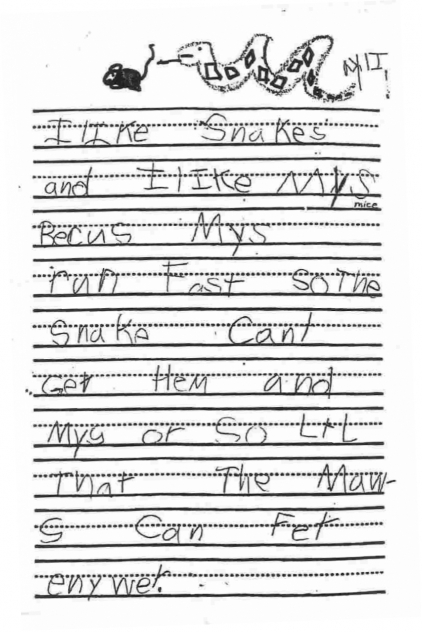 I lIKe Snakes
and I lIKe Mys
mice
Becus Mys
run Fast so The
Snake Can't
Get Hem and
Mys or So LtL
That The Maw-
s Can Fet
enywet.